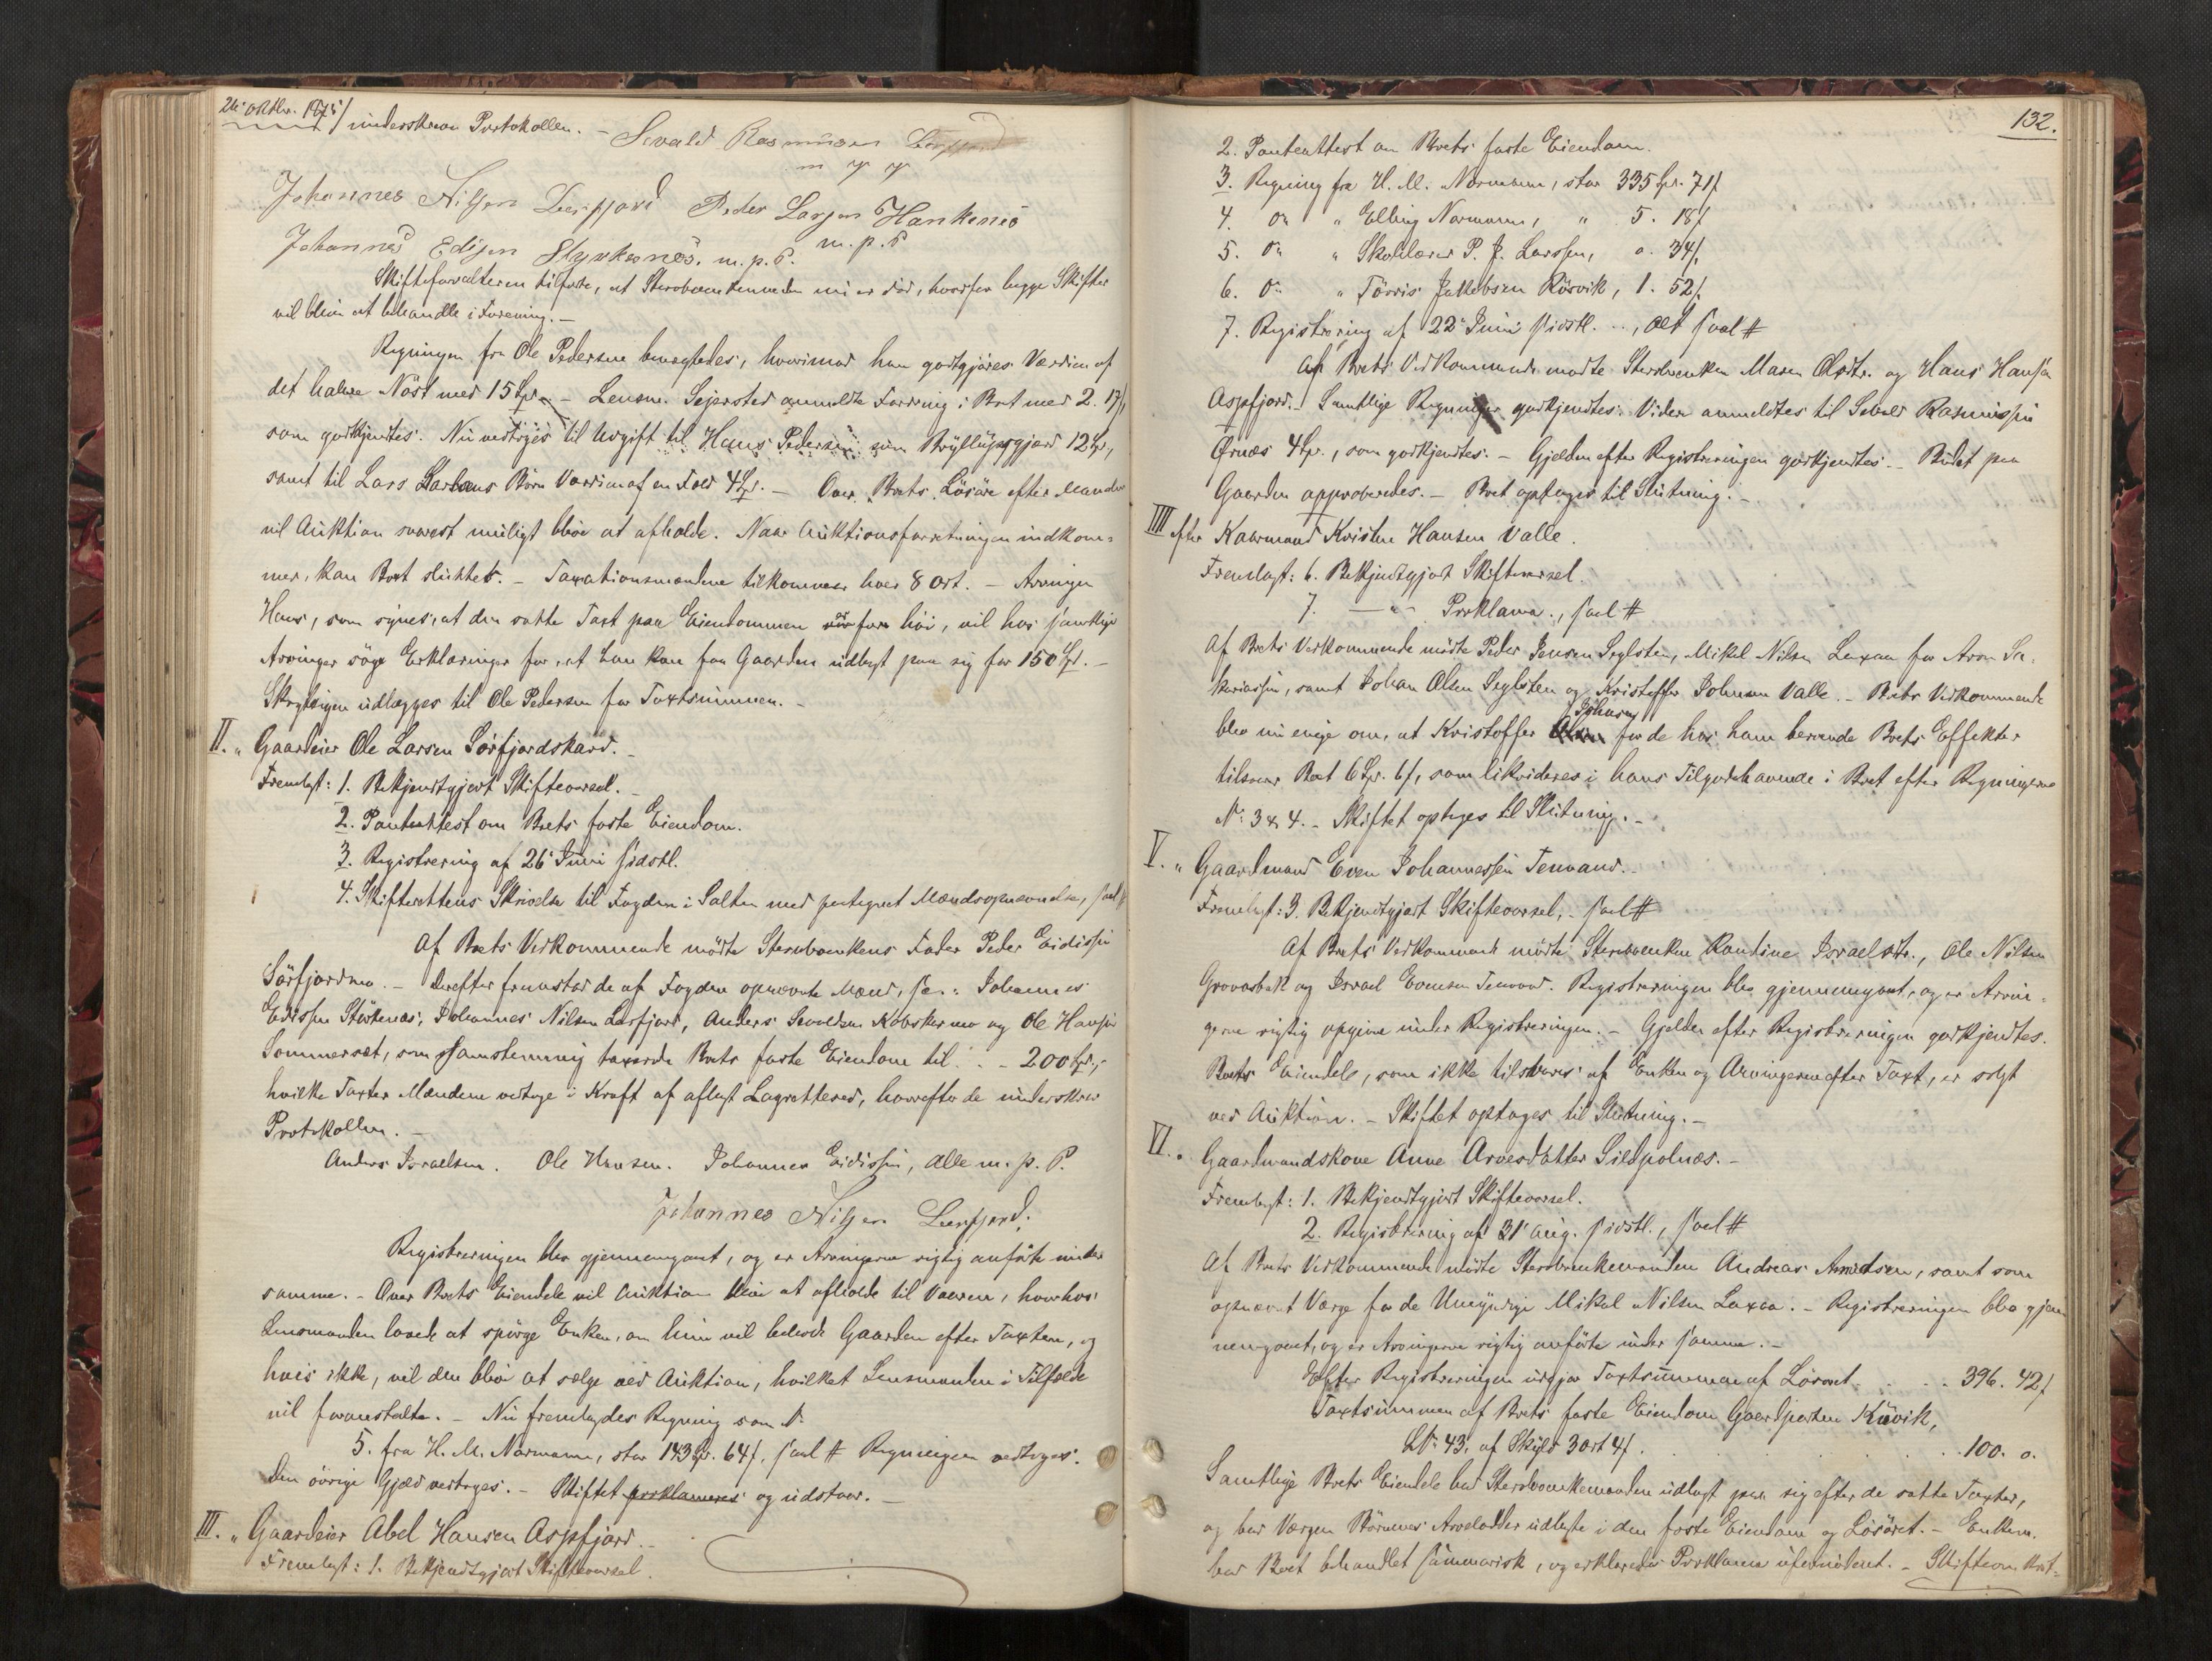 26' oktbr. 1875
underskrev Protokollen. – Sevald Rasmusen Leirfjord
m p p
Johannes Nilsen Leerfjord Peder Larsen Hankenes
m. p. P
Johannes Edisen Styrkesnes. m. p. P.
Skifteforvalteren tilførte, at Stervboenkemanden nu er død, hvorfor begge Skifter
vil blive at behandle i Forening. –
Regningen fra Ole Pedersen benegtedes, hvorimod han godtgjøres Værdien af
det halve Nøst med 15 Spd. – Lensm. Sejersted anmeldte Fordring i Boet med 2. 17 f,
som godkjendtes. Nu vedtoges til Udgift til Hans Pedersen som Bryllupsgjærd 12 Sp,
samt til Lars Larsens Børn Værdien af en Koe 4 Sp. – Over Boets Løsøre efter Manden
vil Auktion snarest muligt blive at afholde. Naar Auktionsforretningen indkom=
mer, kan Boet sluttes. – Taxationsmændene tilkommer hver 8 ort. – Arvingen
Hans, som synes, at den satte Taxt paa Eiendommen er for høi, vil hos samtlige
Arvinger søge Erklæringer for, at han kan faa Gaarden udlagt paa sig for 150 Sp. –
udlægges til Ole Pedersen for Taxtsummen. –
II. " Gaardeier Ole Larsen Sørfjordskard. –
Fremlagt: 1. Bekjendtgjort Skiftevarsel. –
2. Panteattest om Boets faste Eiendom.
3. Registrering af 26' Juni sidstl.
4. Skifterettens Skrivelse til Fogden i Salten med paategnet Mændsopnævnelse, sal #
Af Boets Vedkommende mødte Stervboenkens Fader Peder Eidissen
Sørfjordmo. – Derefter fremstod de af Fogden opnævnte Mænd, s.: Johannes
Edissen Størkesnæs, Johannes Nilsen Leerfjord, Anders og Ole Hansen
Sommerset, som samstemmig taxerede Boets faste Eiendom til . . – 200 Sp,
hvilke Taxter Mændene vedtoge i Kraft af aflagt Lagretteed, hvorefter de underskrev
Protokollen. –
Anders Israelsen. Ole Hansen. Johannes Eidissen, Alle m. p. P.
Johannes Nilsen Leerfjord.
Registreringen blev gjennemgaaet, og er Arvingerne rigtig anførte under
samme. – Over Boets Eiendele vil Auktion blive at afholde til Vaaren, hvorhos
Lensmanden lovede at spørge Enken, om hun vil beholde Gaarden efter Taxten, og
hvis ikke, vil den blive at sælge ved Auktion, hvilket Lensmanden i Tilfælde
vil foranstalte. – Nu fremlagdes Regning som No
5. fra H. M. Normann, stor 143 Sp. 64 f, sal # Regningen vedtoges.
Den øvrige Gjæld vedtoges. – Skiftet proklameres og udstaar. –
III. " Gaardeier Abel Hansen Aspfjord. –
Fremlagt: 1. Bekjendtgjort Skiftevarsel.
132.
2. Panteattest om Boets faste Eiendom.
3. Regning fra H. M. Normann, stor 335 Sp. 71 f
4. Do " Elling Normann, " 5. 18 f
5. Do " Skolelærer P. J. Larssen, o. 34 f,
6. Do " Tørris Jakobsen Røsvik, 1. 52 f.
7. Registrering af 22' Juni sidstl. . ., Alt sal #
Af Boets Vedkommende mødte Stervboenken Maren Olsdtr. og Hans Hansen
Aspfjord. – Samtlige Regninger godkjendtes. Videre anmeldtes til Sevald Rasmussen
Ørnæs 4 Sp., som godkjendtes. – Gjælden efter Registreringen godkjendtes. – Budet paa
Gaarden approberedes. – Boet optages til Slutning. –
IIII efter Kaarmand Kristen Hansen Valle.
Fremlagt: 6. Bekjendtgjort Skiftevarsel.
7. – " – Proklama., sal #
Af Boets Vedkommende mødte Peder Jensen Seglsten, Mikal Nilsen Laxaa for Aron Sa=
kariassen, samt Johan Olsen Seglsten og Kristoffer Johnsen Valle. – Boets Vedkommende
Johnsen
blev nu enige om, at Kristoffer Olsen for de hos ham beroende Boets Effekter
tilsvarer Boet 6 Sp. 6 f, som likvideres i hans Tilgodehavende i Boet efter Regningerne
No 3 & 4. – Skiftet optages til Slutning. –
V. " Gaardmand Even Johannessen Tenvand. –
Fremlagt: 3. Bekjendtgjort Skiftevarsel, – sal #
Af Boets Vedkommende mødte Stervboenken Rantine Israelsdtr., Ole Nilsen
Grovasbak og Israel Evensen Tenvand. Registreringen blev gjennemgaaet, og er Arvin=
gerne rigtig opgivne under Registreringen. – Gjælden efter Registreringen godkjendtes.
Boets Eiendele, som ikke tilsvares af Enken og Arvingerne efter Taxt, er solgt
ved Auktion. – Skiftet optages til Slutning. –
VI. " Gaardmandskone Anne Arnesdatter Sildpolnæs. –
Fremlagt: 1. Bekjendtgjort Skiftevarsel.
2. Registrering af 31' Aug. sidstl., sal #
Af Boets Vedkommende mødte Stervboenkemanden Andreas Amundsen, samt som
opnævnt Værge for de Umyndige Mikal Nilsen Laxaa. – Registreringen blev gjen=
nemgaaet, og er Arvingerne rigtig anførte under samme. –
Efter Registreringen udgjør Taxtsummen af Løsøret . . . 396. 42 f
Taxtsummen af Boets faste Eiendom Gaardparten Kuvik,
L.No 43, af Skyld 3 ort 4 f. . . . . 100. o.
Samtlige Boets Eiendele bad Stervboenkemanden udlagt paa sig efter de satte Taxter,
og bad Værgen Børnenes Arvelodder udlagte i den faste Eiendom og Løsøret. – Enkem.
bad Boet behandlet summarisk, og erklæredes Proklama ufornødent. –